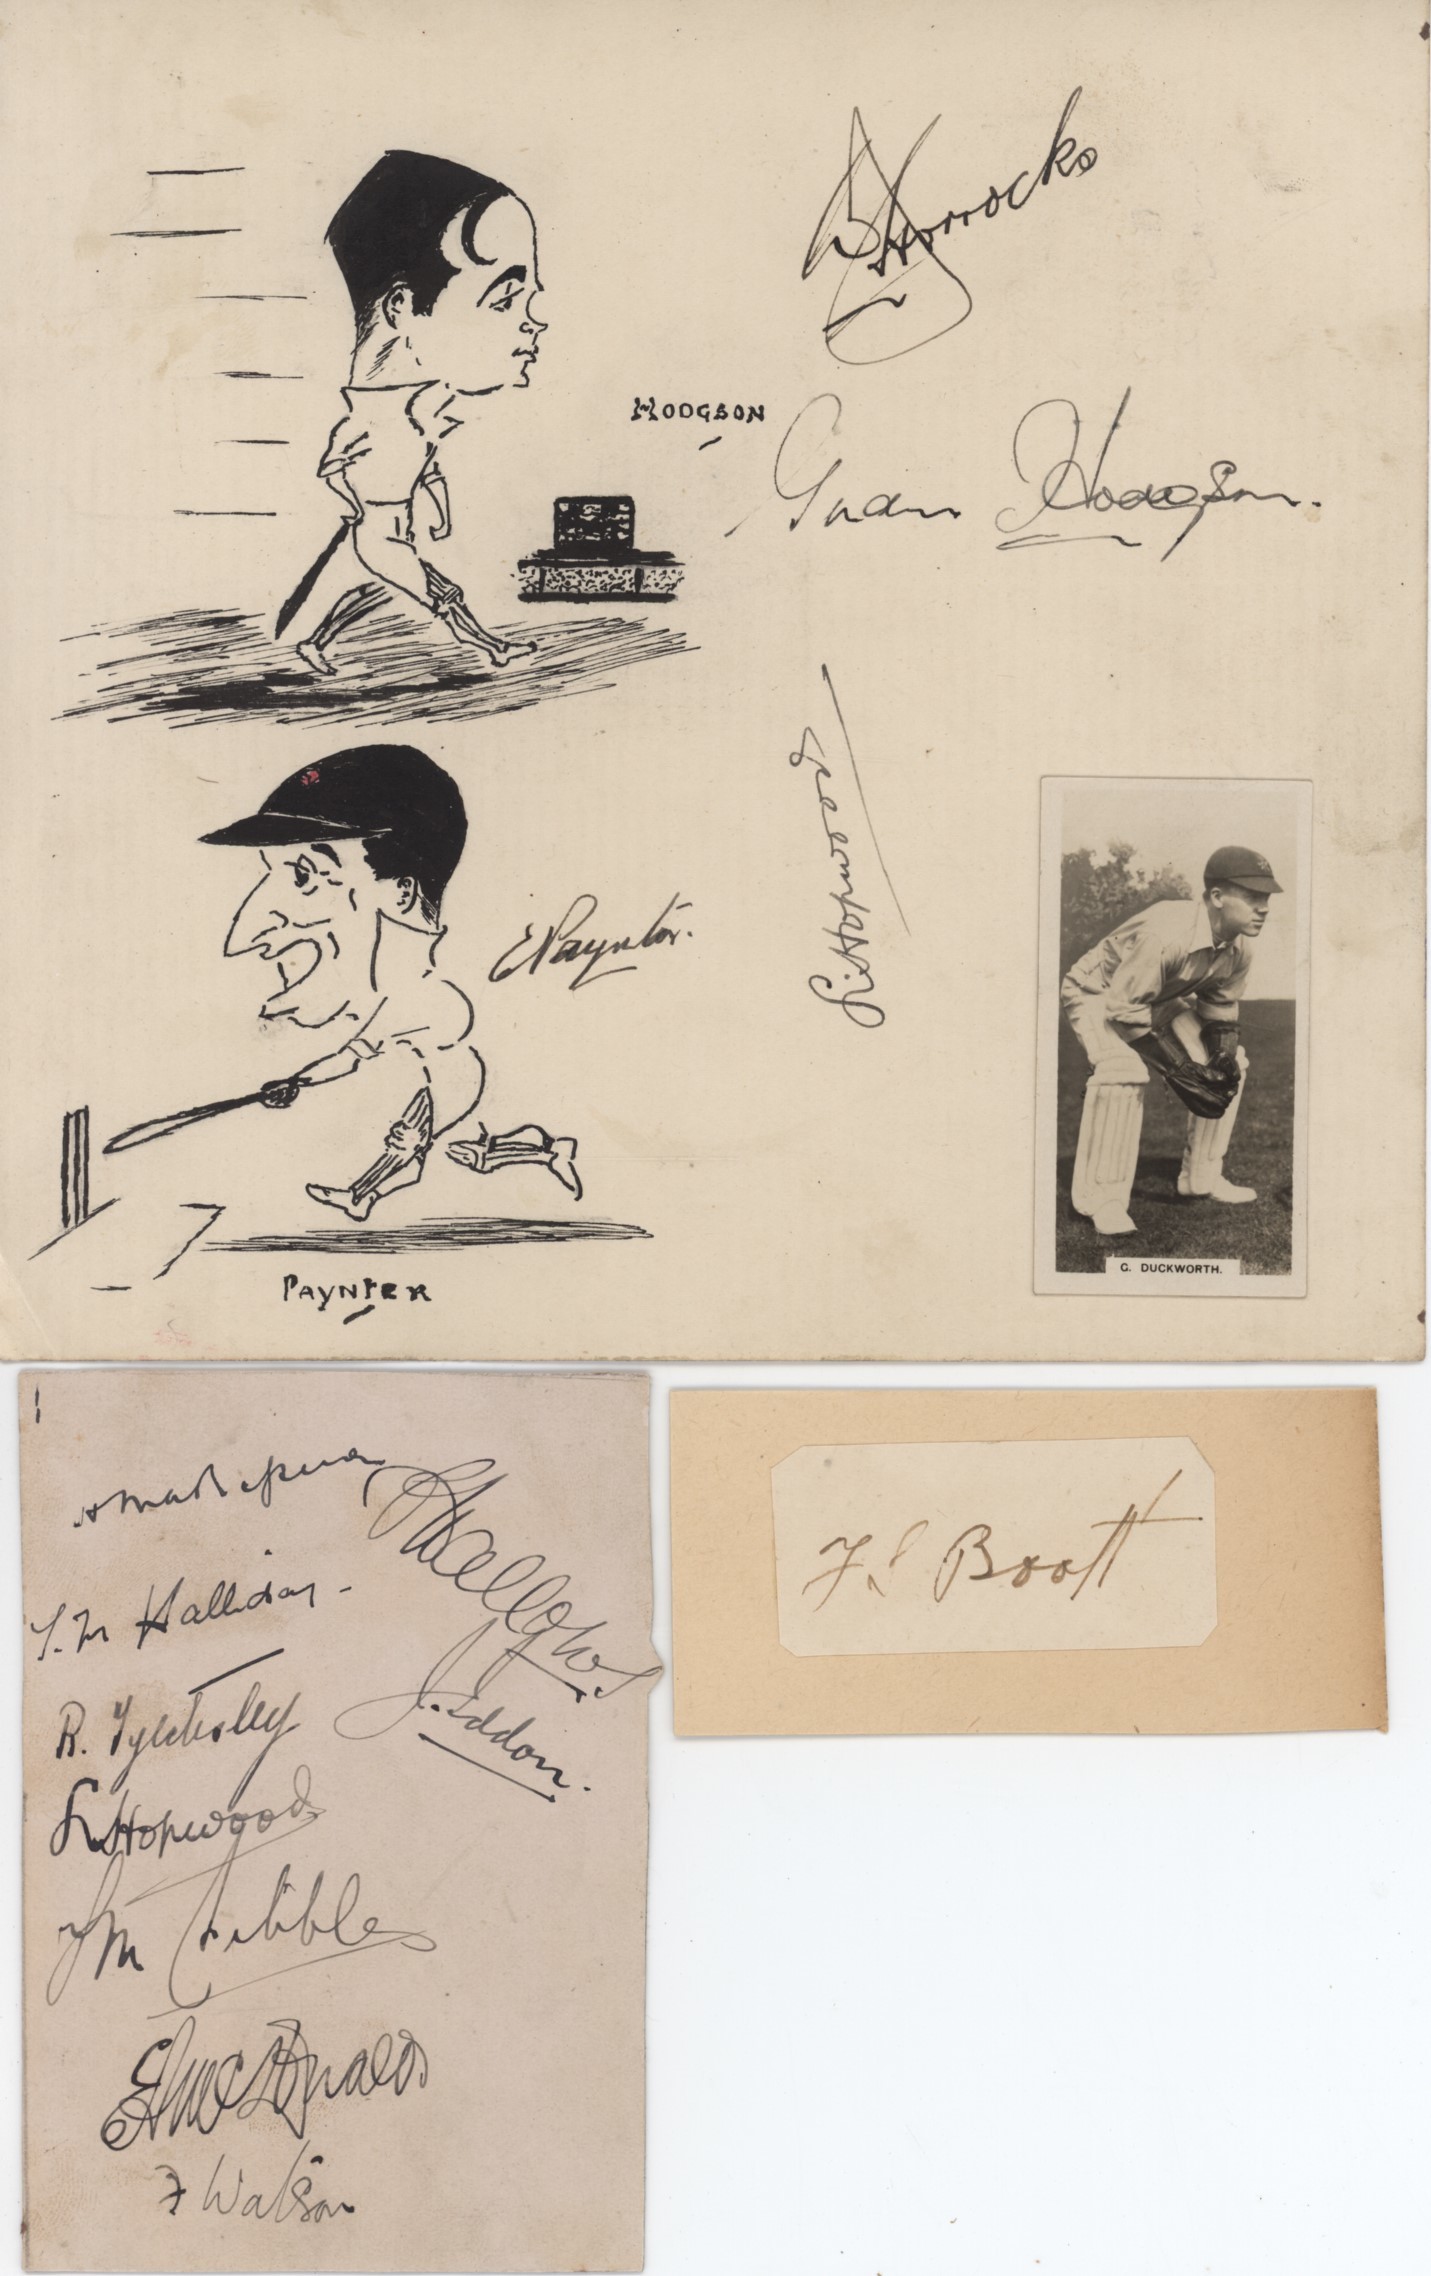 W Horrocks
HODGSON
Gordon Hodgson.
E Paynter.
L. Hopwood
G. DUCKWORTH.
PAYNTER
T. M Halliday -
R. Tyldesley
J. Iddon.
L Hopwood
F M Sibbles
E A McDonald
F Watson
F S Boott